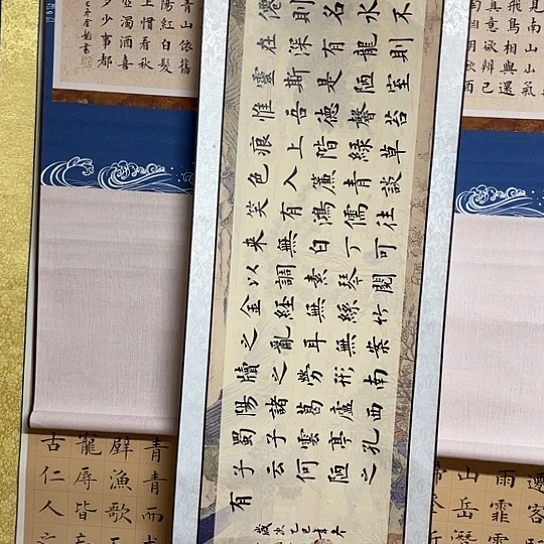 青山依舊
陽紅白髮
上慣看秋
濁酒喜
少事都
僊則名水不
在深有龍則
靈斯是陋室
惟吾德馨苔
痕上階綠草
色入簾青談
笑有鴻儒往
來無白丁可
以調素琴閱
金經無絲竹
之亂耳無案
牘之勞形南
陽諸葛廬西
蜀子雲亭孔
子云何陋之
有
歲次乙巳
鳥相與還
山氣
青青而
壁漁歌
辱皆
古仁人
遷客
雨霏
山岳